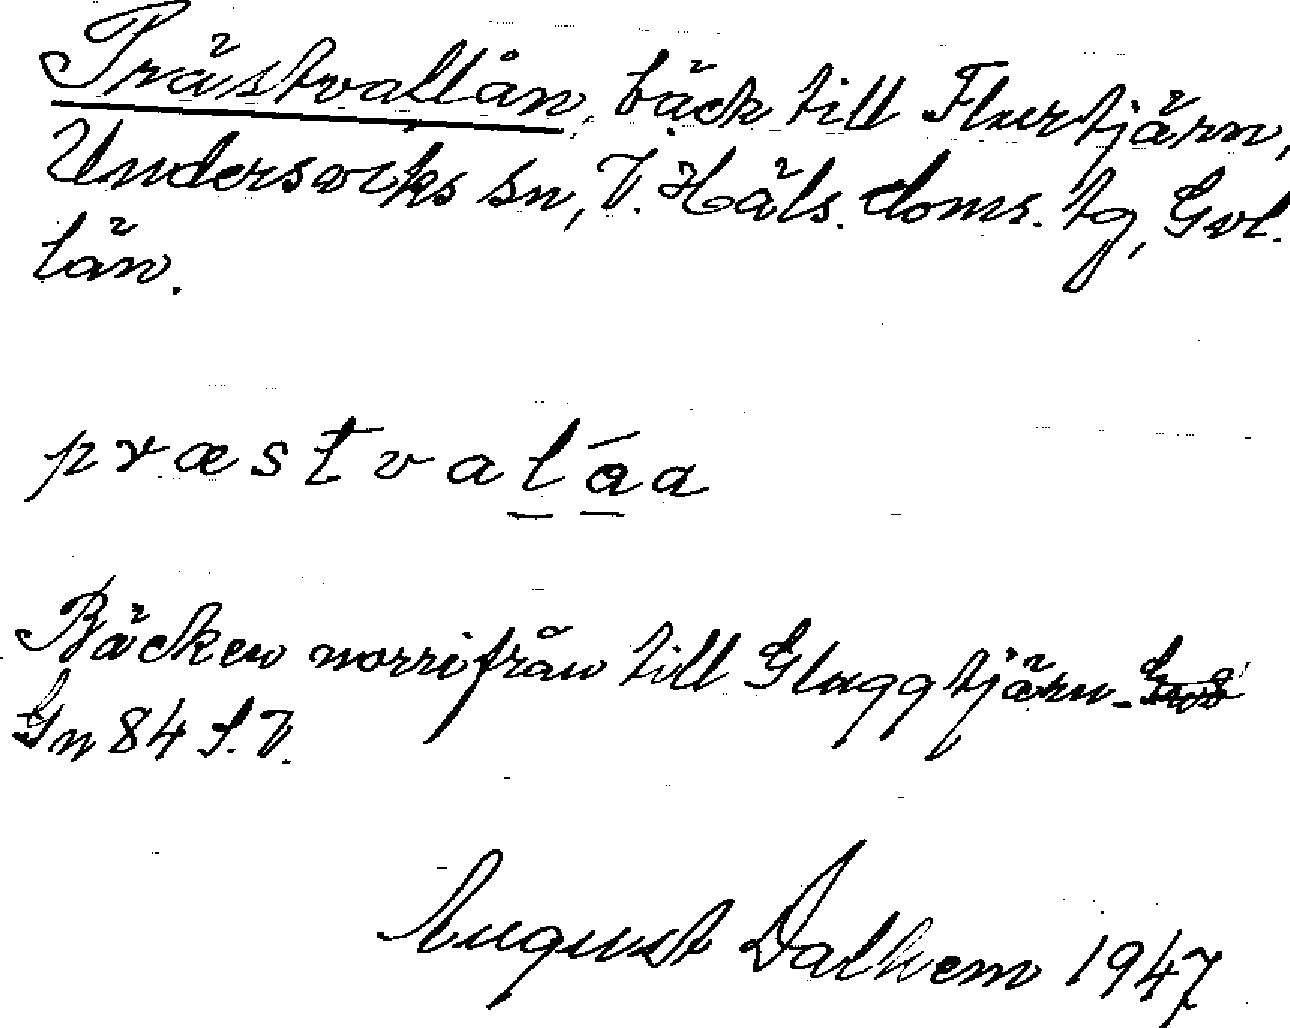 Prästvallån, bäck till Flurtjärn,
Undersviks sn, V. Häls. doms. tg, Gvl.
län.
præstvalåa
Bäcken norrifrån till Gluggtjärn.
Gn 84 S.V.
August Dalhem 1947